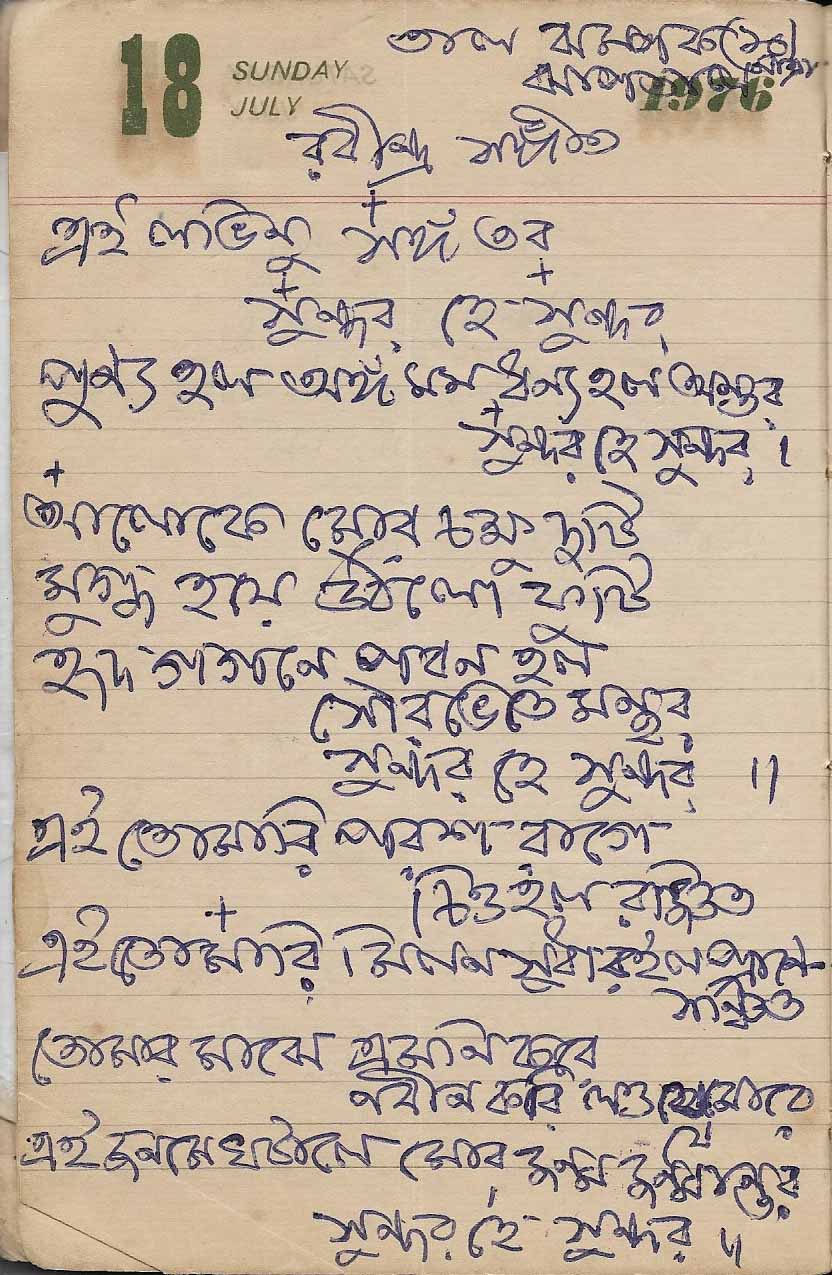 18 SUNDAY
JULY 1976
তাল ঝম্পক (১০
রবীন্দ্র সঙ্গীত
এই লভিনু সঙ্গ তব
সুন্দর হে সুন্দর
পুণ্য হল অঙ্গ মম ধন্য হল অন্তর
সুন্দর হে সুন্দর ।
আলোকে মোর চক্ষু দুটি
মুগ্ধ হয়ে উঠলো ফুটি
হৃদ গগনে পবন হল
সৌরভেতে মন্থর
সুন্দর হে সুন্দর ॥
এই তোমারি পরশ রাগে
চিত্ত হল রঞ্জিত
এই তোমারি মিলন সুধা রইল প্রাণে
সঞ্চিত
তোমার মাঝে এমনি করে
নবীন করি লও মোরে
এই জনমে ঘটালে মোর জন্ম জন্মান্তর
সুন্দর হে সুন্দর ॥